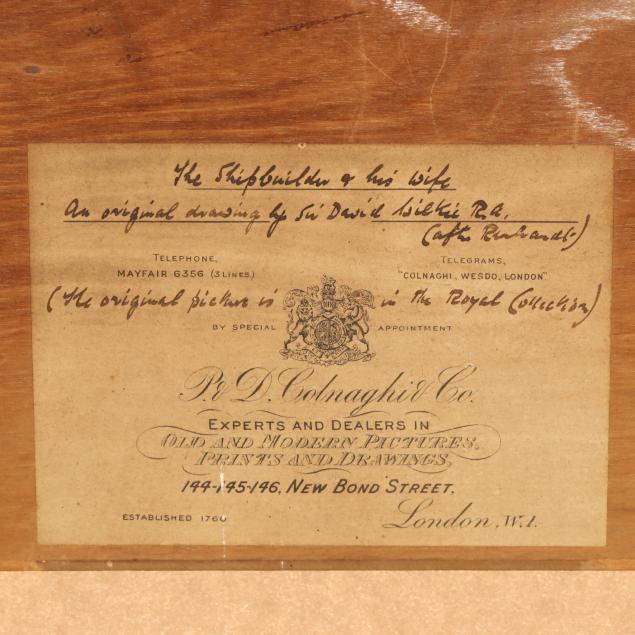 The Shipbuilder & his Wife
An original drawing by Sir David Wilkie R.A.
(after Rembrandt)
TELEPHONE,
MAYFAIR 6356 (3 LINES.)
TELEGRAMS,
"COLNAGHI, WESDO, LONDON"
(The original picture is in the Royal Collection)
BY SPECIAL APPOINTMENT
P. & D. Colnaghi & Co.
EXPERTS AND DEALERS IN
OLD AND MODERN PICTURES,
PRINTS AND DRAWINGS,
144-145-146, NEW BOND STREET,
ESTABLISHED 1760
London, W.1.